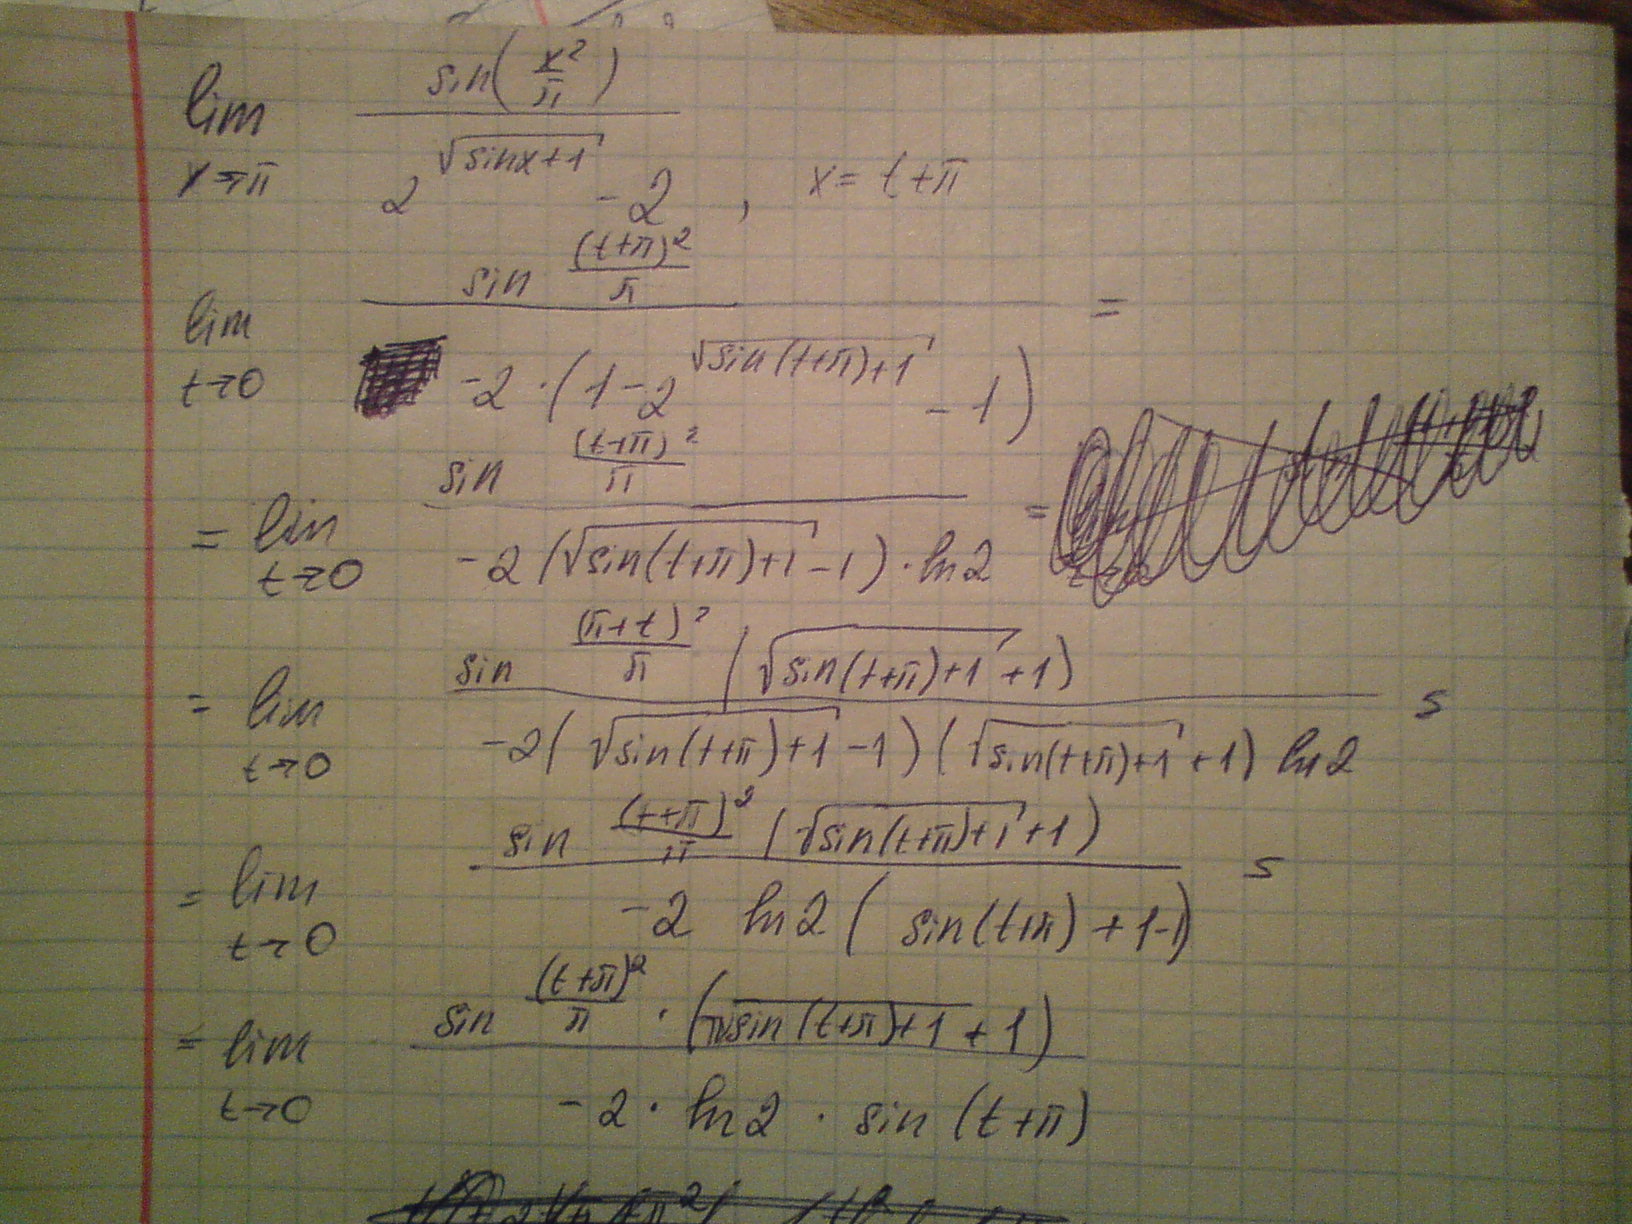 lim x→π sin(x²/π) / (2^√(sinx+1) - 2) , x = t+π
lim t→0 sin (t+π)²/π / (-2·(1-2^√(sin(t+π)+1) - 1)) =
= lim t→0 sin (t+π)²/π / (-2(√(sin(t+π)+1) - 1)·ln2) =
= lim t→0 sin (π+t)²/π (√(sin(t+π)+1) + 1) / (-2(√(sin(t+π)+1) - 1)(√(sin(t+π)+1) + 1) ln2) =
= lim t→0 sin (t+π)²/π (√(sin(t+π)+1) + 1) / (-2 ln2 (sin(t+π) + 1-1)) =
= lim t→0 sin (t+π)²/π · (√(sin(t+π)+1) + 1) / (-2 · ln2 · sin(t+π))